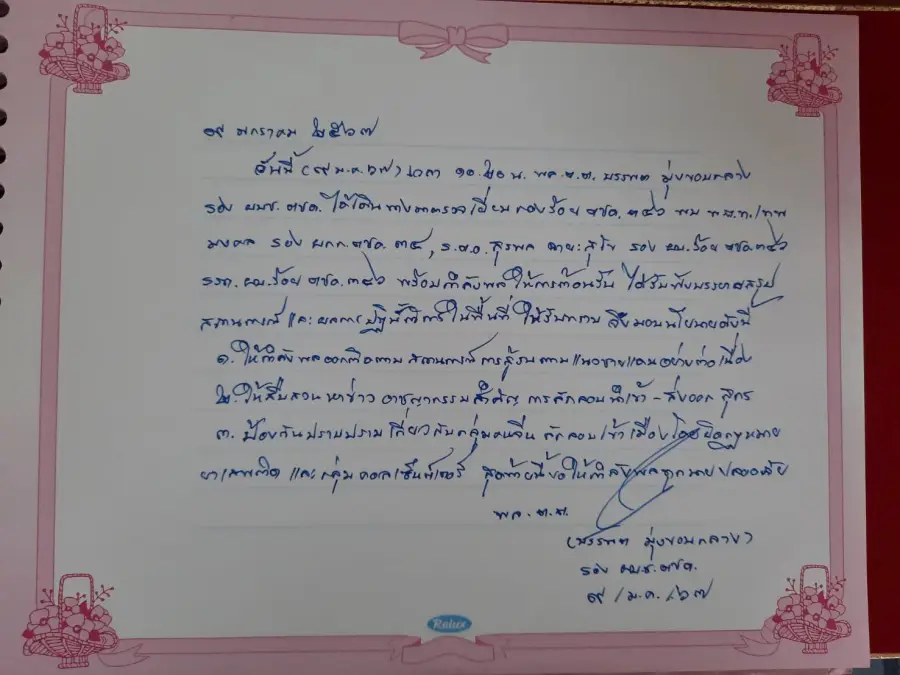 ๑๙ มกราคม ๒๕๖๗
วันนี้ (๑๙ ม.ค.๖๗) เวลา ๑๐.๒๐ น. พล.ต.ต. บรรพต มุ่งขอบกลาง
รอง ผบช.ตชด. ได้เดินทางมาตรวจเยี่ยม กองร้อย ตชด. ๓๔๖ พบ พ.ต.ท. เทพ
มงคล รอง ผกก.ตชด. ๓๔, ร.ต.อ. สุรพล รอง ผบ.ร้อย ตชด.๓๔๖
รรก. ผบ.ร้อย ตชด.๓๔๖ พร้อมกำลังพล ให้การต้อนรับ ได้รับฟังบรรยายสรุป
สถานการณ์ และ ผลการปฏิบัติการในพื้นที่ ให้รับทราบ จึงมอบนโยบายดังนี้
๑. ให้กำลังพลออกติดตาม สถานการณ์ การสู้รบตามแนวชายแดนอย่างต่อเนื่อง
๒. ให้สืบสวน หาข่าว อาชญากรรมสำคัญ การลักลอบนำเข้า - ส่งออก สุกร
๓. ป้องกันปราบปราม เกี่ยวกับกลุ่มคนจีน ลักลอบเข้าเมืองโดยผิดกฎหมาย
ยาเสพติด และ กลุ่ม คอลเซ็นเตอร์ สุดท้ายนี้ขอให้กำลังพลทุกนายปลอดภัย
พล.ต.ต.
(บรรพต มุ่งขอบกลาง)
รอง ผบช.ตชด.
๑๙ / ม.ค. / ๖๗
Relux